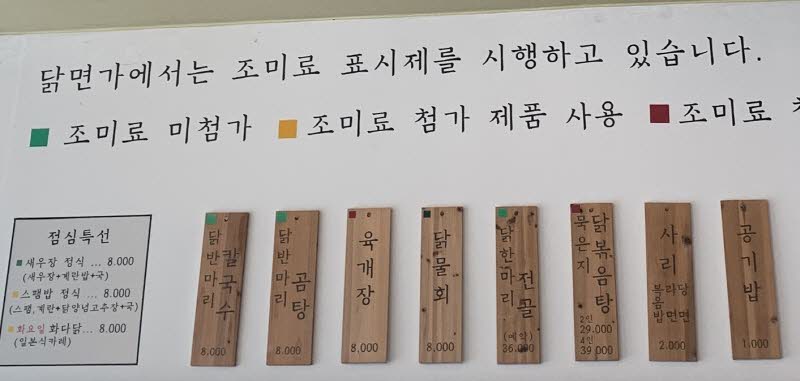 닭면가에서는 조미료 표시제를 시행하고 있습니다.
조미료 미첨가 조미료 첨가 제품 사용 조미료
점심특선
새우장 정식 ... 8.000
(새우장+계란밥+국)
스팸밥 정식 ... 8.000
(스팸,계란+닭양념고추장+국)
화요일 화다닭... 8.000
(일본식카레)
닭반마리 칼국수
8,000
닭반마리 곰탕
8.000
육개장
8,000
닭물회
8,000
닭한마리 전골
(예약)
36.000
묵은지 닭볶음탕
2인
29.000
4인
39.000
사리
당면
라면
볶음밥
2.000
공기밥
1.000